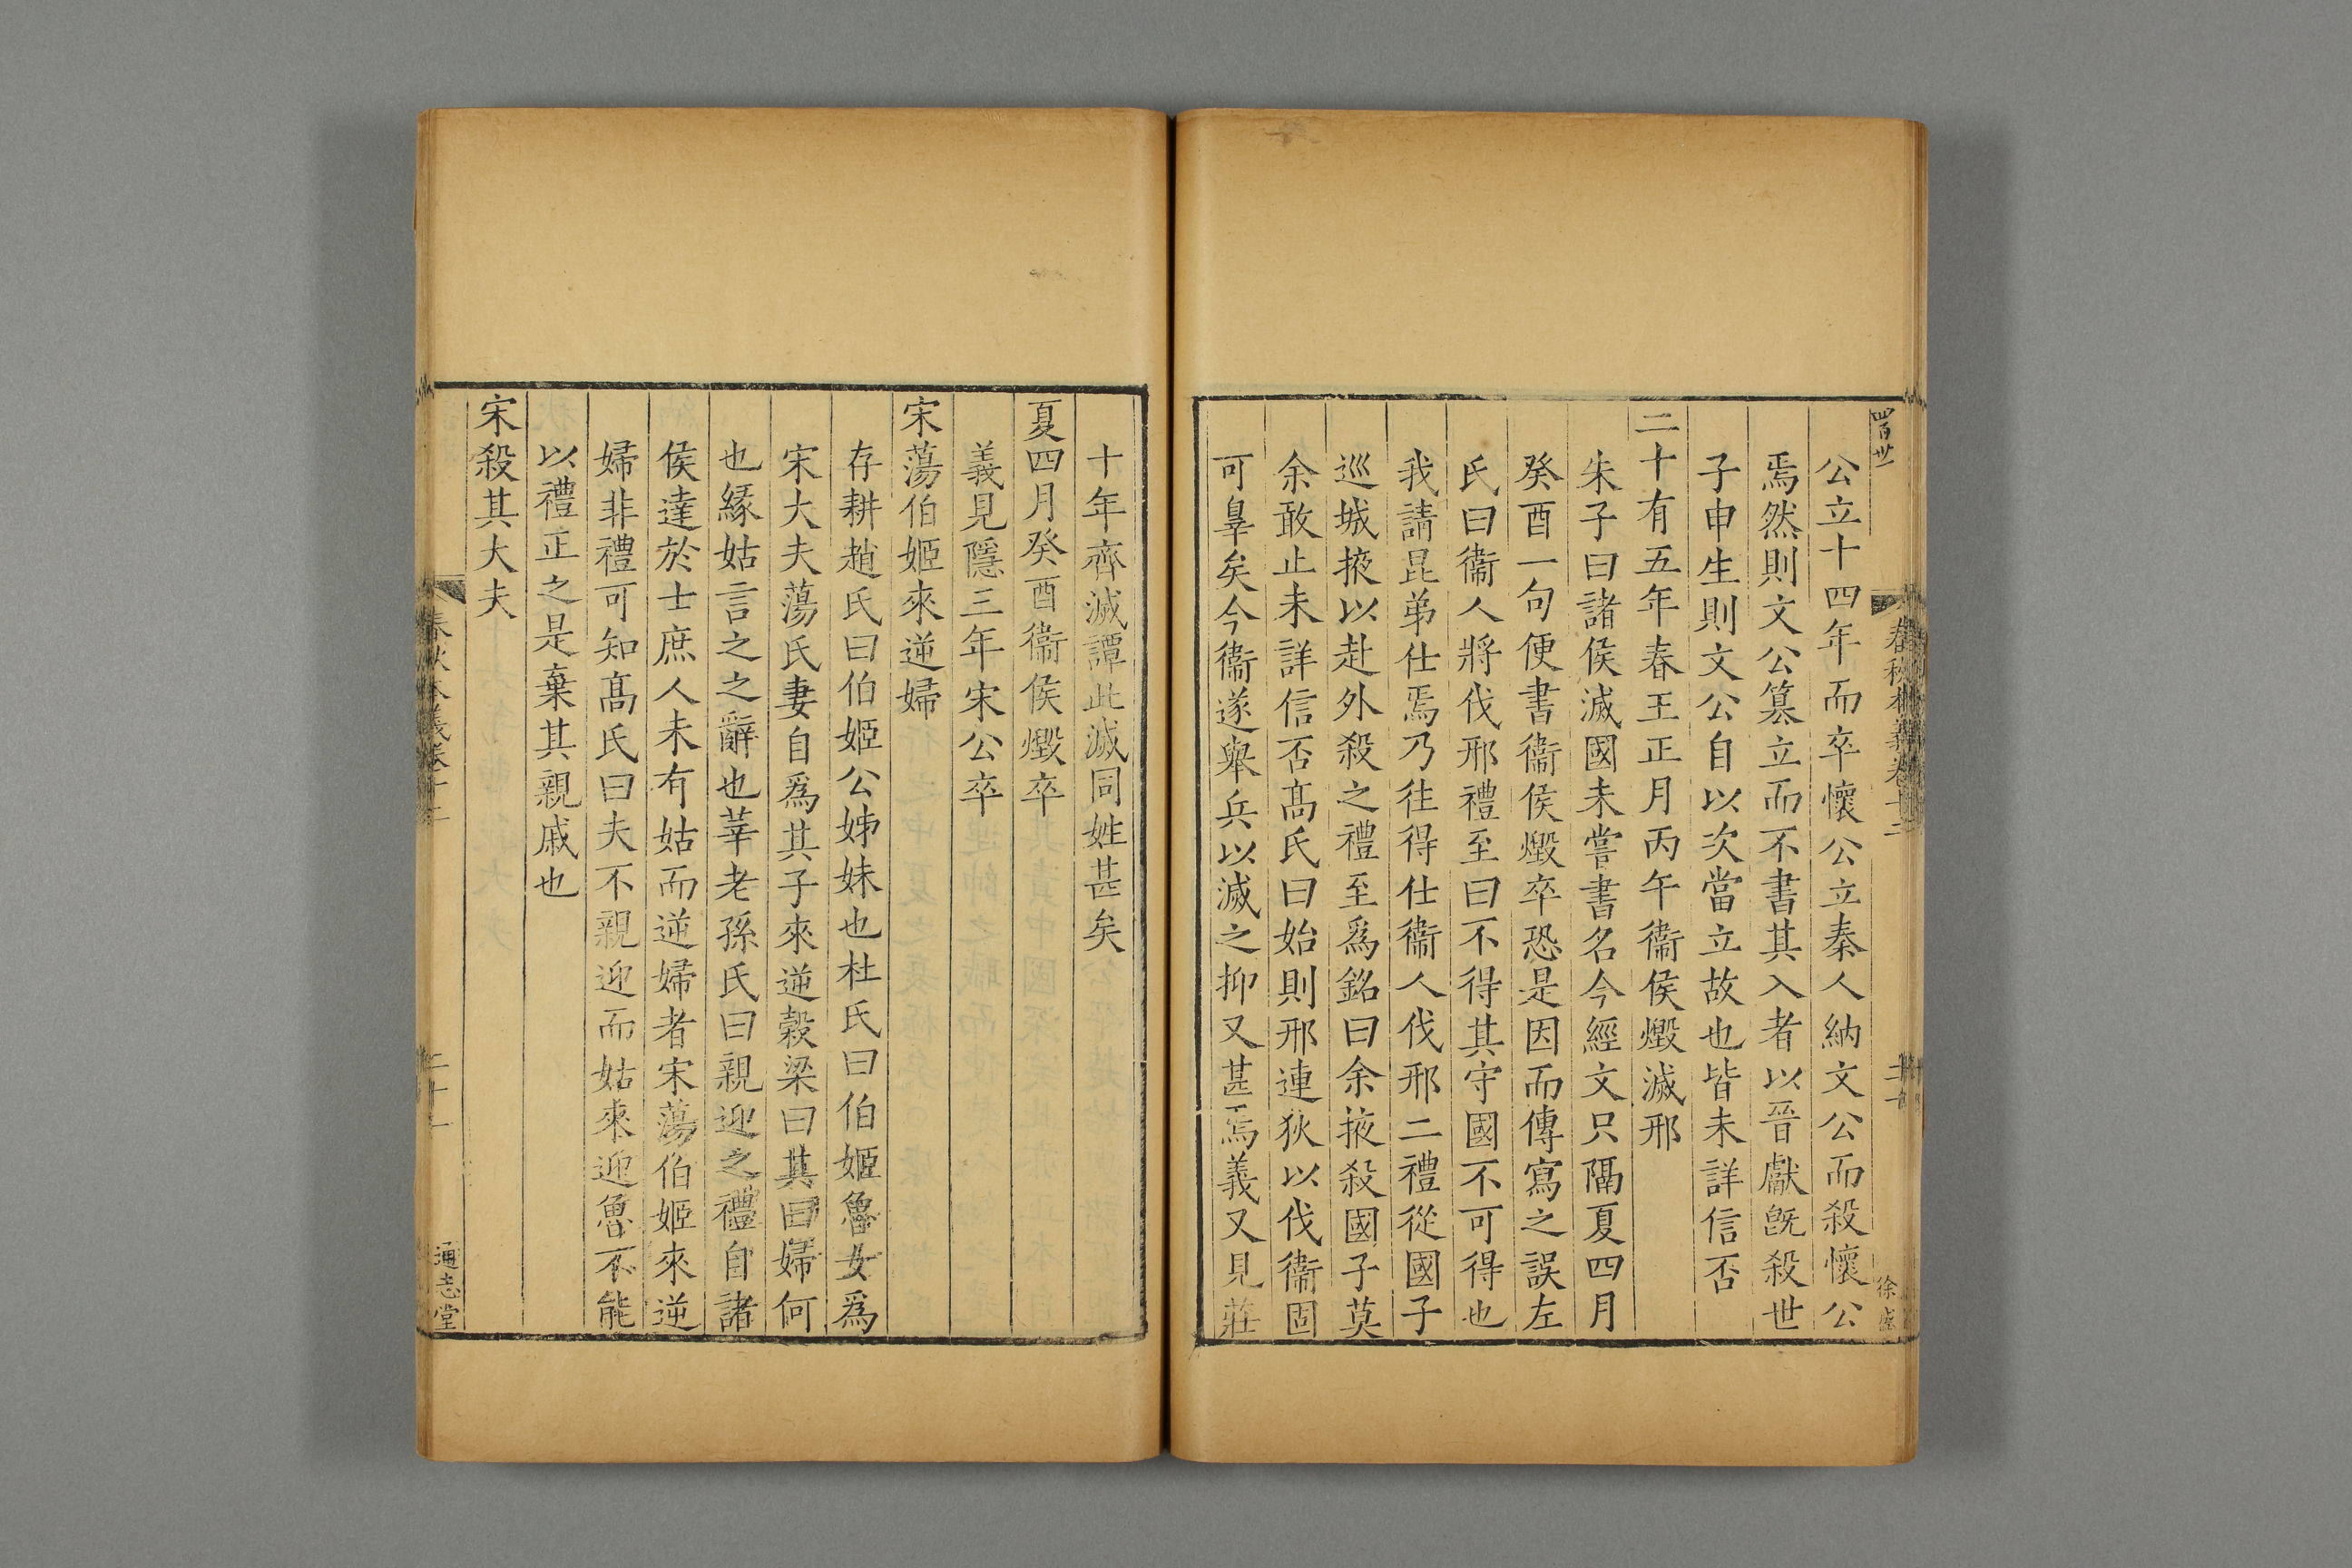 公立十四年而卒懷公立秦人納文公而殺懷公
焉然則文公篡立而不書其入者以晉獻旣殺世
子申生則文公自以次當立故也皆未詳信否
二十有五年春王正月丙午衞侯燬滅邢
朱子曰諸侯滅國未嘗書名今經文只隔夏四月
癸酉一句便書衞侯燬卒恐是因而傳寫之誤左
氏曰衞人將伐邢禮至曰不得其守國不可得也
我請昆弟仕焉乃往得仕衞人伐邢二禮從國子
巡城掖以赴外殺之禮至爲銘曰余掖殺國子莫
余敢止未詳信否髙氏曰始則邢連狄以伐衞固
可辠矣今衞遂舉兵以滅之抑又甚焉義又見莊
十年齊滅譚此滅同姓甚矣
夏四月癸酉衞侯燬卒
義見隱三年宋公卒
宋蕩伯姬來逆婦
存耕趙氏曰伯姬公姊妹也杜氏曰伯姬魯女爲
宋大夫蕩氏妻自爲其子來逆穀梁曰其曰婦何
也緣姑言之之辭也莘老孫氏曰親迎之禮自諸
侯達於士庶人未有姑而逆婦者宋蕩伯姬來逆
婦非禮可知髙氏曰夫不親迎而姑來迎魯不能
以禮正之是棄其親戚也
宋殺其大夫
春秋本義卷十二
通志堂